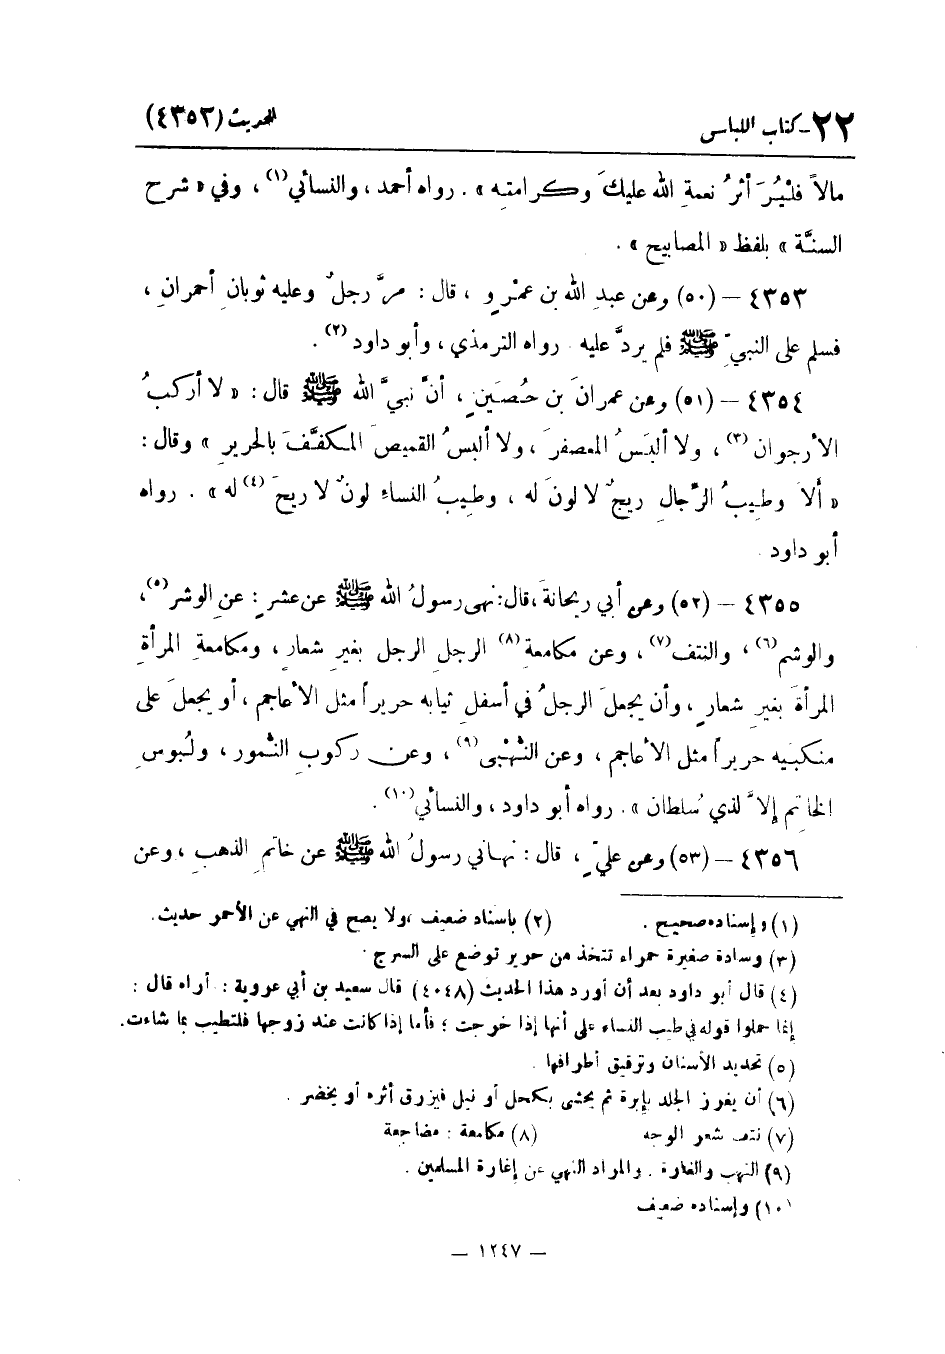 ٢٢ - كتاب اللباس
الحديث (٤٣٥٣)
مالاً فلْيُرَ أثرُ نعمةِ الله عليكَ وكرامتِه » . رواه أحمد ، والنسائي(١) ، وفي « شرح
السنَّة » بلفظ « المصابيح » .
٤٣٥٣ – (٥٠) وعن عبدِ الله بن عمْرٍو ، قال : مرَّ رجلٌ وعليه ثوبانِ أحمرانِ ،
فسلم على النبيِّ ﷺ فلم يردَّ عليه . رواه الترمذي ، وأبو داود(٢) .
٤٣٥٤ – (٥١) وعن عمرانَ بن حُصَينٍ ، أنَّ نبيَّ الله ﷺ قال : « لا أركبُ
الأرجوان(٣) ، ولا ألبَسُ المعصفرَ ، ولا ألبسُ القميصَ المكفَّفَ بالحرير » وقال :
« ألاَ وطِيبُ الرِّجالِ ريحٌ لا لونَ له ، وطِيبُ النساء لونٌ لا ريحَ(٤) له » . رواه
أبو داود .
٤٣٥٥ – (٥٢) وعن أبي ريحانةَ ، قال : نهى رسولُ الله ﷺ عن عشرٍ : عنِ الوشر(٥) ،
والوشم(٦) ، والنتف(٧) ، وعن مكامعةِ(٨) الرجلِ الرجل بغيرِ شعارٍ ، ومكامعةِ المرأةِ
المرأةَ بغيرِ شعارٍ ، وأن يجعلَ الرجلُ في أسفلِ ثيابه حريراً مثل الأعاجمِ ، أو يجعلَ على
منكبَيه حريراً مثل الأعاجم ، وعن النُّهْبى(٩) ، وعن ركوبِ النُّمور ، ولُبوسِ
الخاتم إلاَّ لذي سُلطان » . رواه أبو داود ، والنسائي(١٠) .
٤٣٥٦ – (٥٣) وعن عليٍّ ، قال : نهاني رسولُ الله ﷺ عن خاتمِ الذهبِ ، وعن
(١) وإسناده صحيح . (٢) بإسناد ضعيف ، ولا يصح في النهي عن الأحمر حديث .
(٣) وسادة صغيرة حمراء تتخذ من حرير توضع على السرج .
(٤) قال أبو داود بعد أن أورد هذا الحديث (٤٠٤٨) قال سعيد بن أبي عروبة : أراه قال :
إنما حملوا قوله في طيب النساء على أنها إذا خرجت ؛ فأما إذا كانت عند زوجها فلتطيب بما شاءت .
(٥) تحديد الأسنان وترقيق أطرافها .
(٦) أن يغرز الجلد بإبرة ثم يحشى بكحل أو نيل فيزرق أثره أو يخضر .
(٧) نتف شعر الوجه (٨) مكامعة : مضاجعة
(٩) النهب والغارة . والمراد النهي عن إغارة المسلمين .
(١٠) وإسناده ضعيف
– ١٢٤٧ –